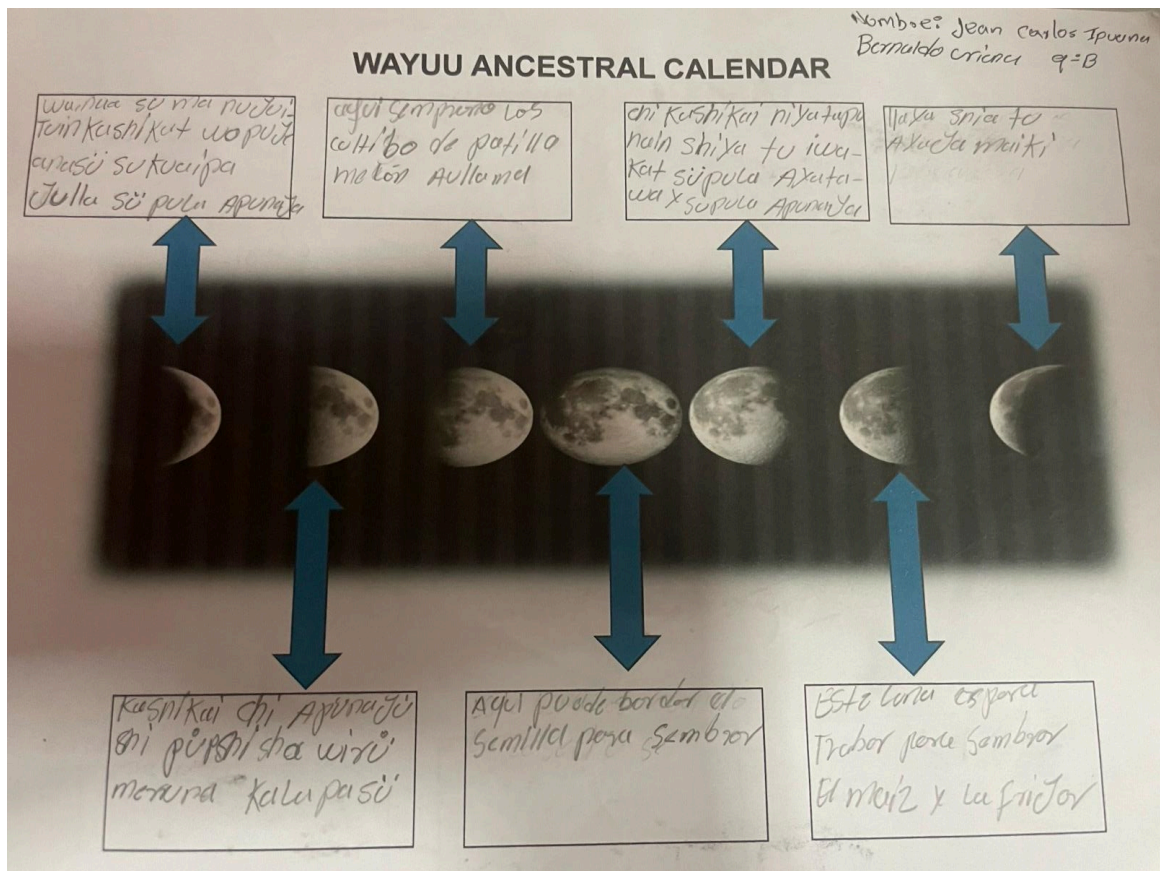 Nombre: Jean Carlos Ipuana
Bernaldo criana 9=B
WAYUU ANCESTRAL CALENDAR
su ma
Tuin Kashikat
anasü su kuaipa
Julla sü pula Apunaja
aqui sempramo Los
cultibo de patilla
melón Aullama
chi Kashikai niyatapu
nain shiya tu iwa-
Kat süpula Axata-
wa x supula Apunanya
shia tu
AxaJa maiki
Kashikai chi ApunaJü
shi püpshi sha wirü
meruna Kalapasü
Aqui puede bordar
Semilla para Sembror
Este luna es para
Trabar para Sembror
El maíz x La friJor